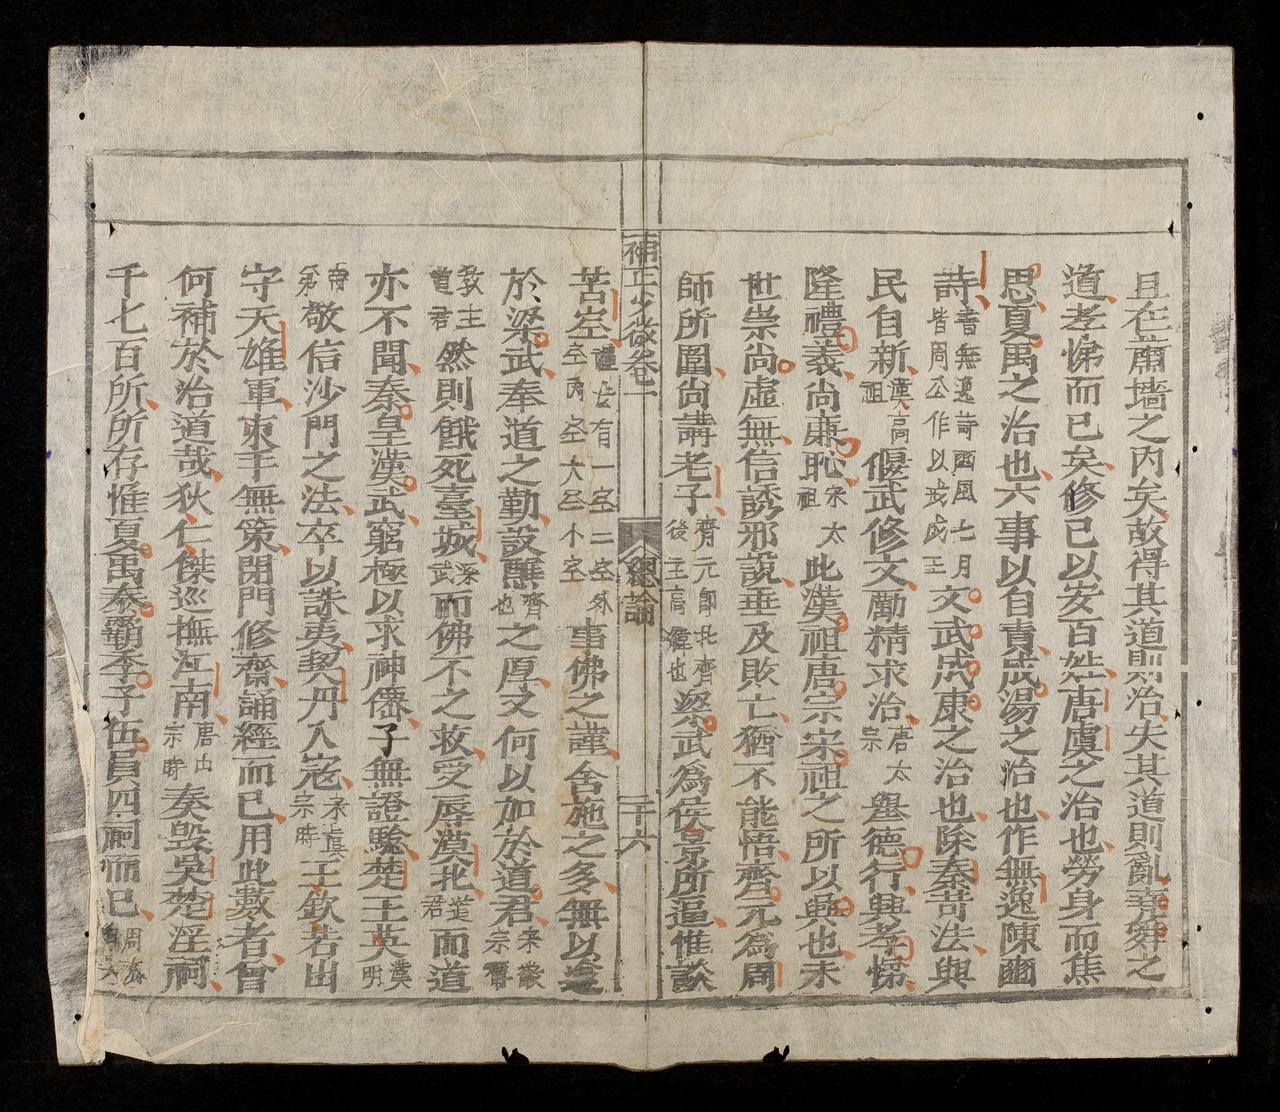 且在蕭墻之內矣故得其道則治失其道則亂堯舜之
道孝悌而已矣修己以安百姓唐虞之治也勞身而焦
思夏禹之治也六事以自責成湯之治也作無逸陳豳
詩書無逸詩豳風七月皆周公作以戒成王文武成康之治也除秦苛法與
民自新漢高祖偃武修文勵精求治唐太宗舉德行興孝悌
隆禮義尚廉恥宋太祖此漢祖唐宗宋祖之所以興也末
世崇尚虛無信誘邪說垂及敗亡猶不能悟齊元為周
師所圍尚講老子齊元即北齊後主高緯也梁武為侯景所逼惟談
補正少微卷一 總論 二十六
苦空有一空二空外空內空大空小空事佛之謹舍施之多無以逾
於梁武奉道之勤設醮齊也之厚又何以加於道君宋徽宗
教主道君然則餓死臺城梁武而佛不之救受辱漠北道君而道
亦不聞秦皇漢武窮極以求神僊子無證驗楚王英漢明
帝弟敬信沙門之法卒以誅夷契丹入寇宋真宗時王欽若出
守天雄軍束手無策閉門修齋誦經而已用此數者曾
何補於治道哉狄仁傑巡撫江南唐出宗時奏毀吳楚淫祠
千七百所所存惟夏禹泰霸季子伍員四祠而已周